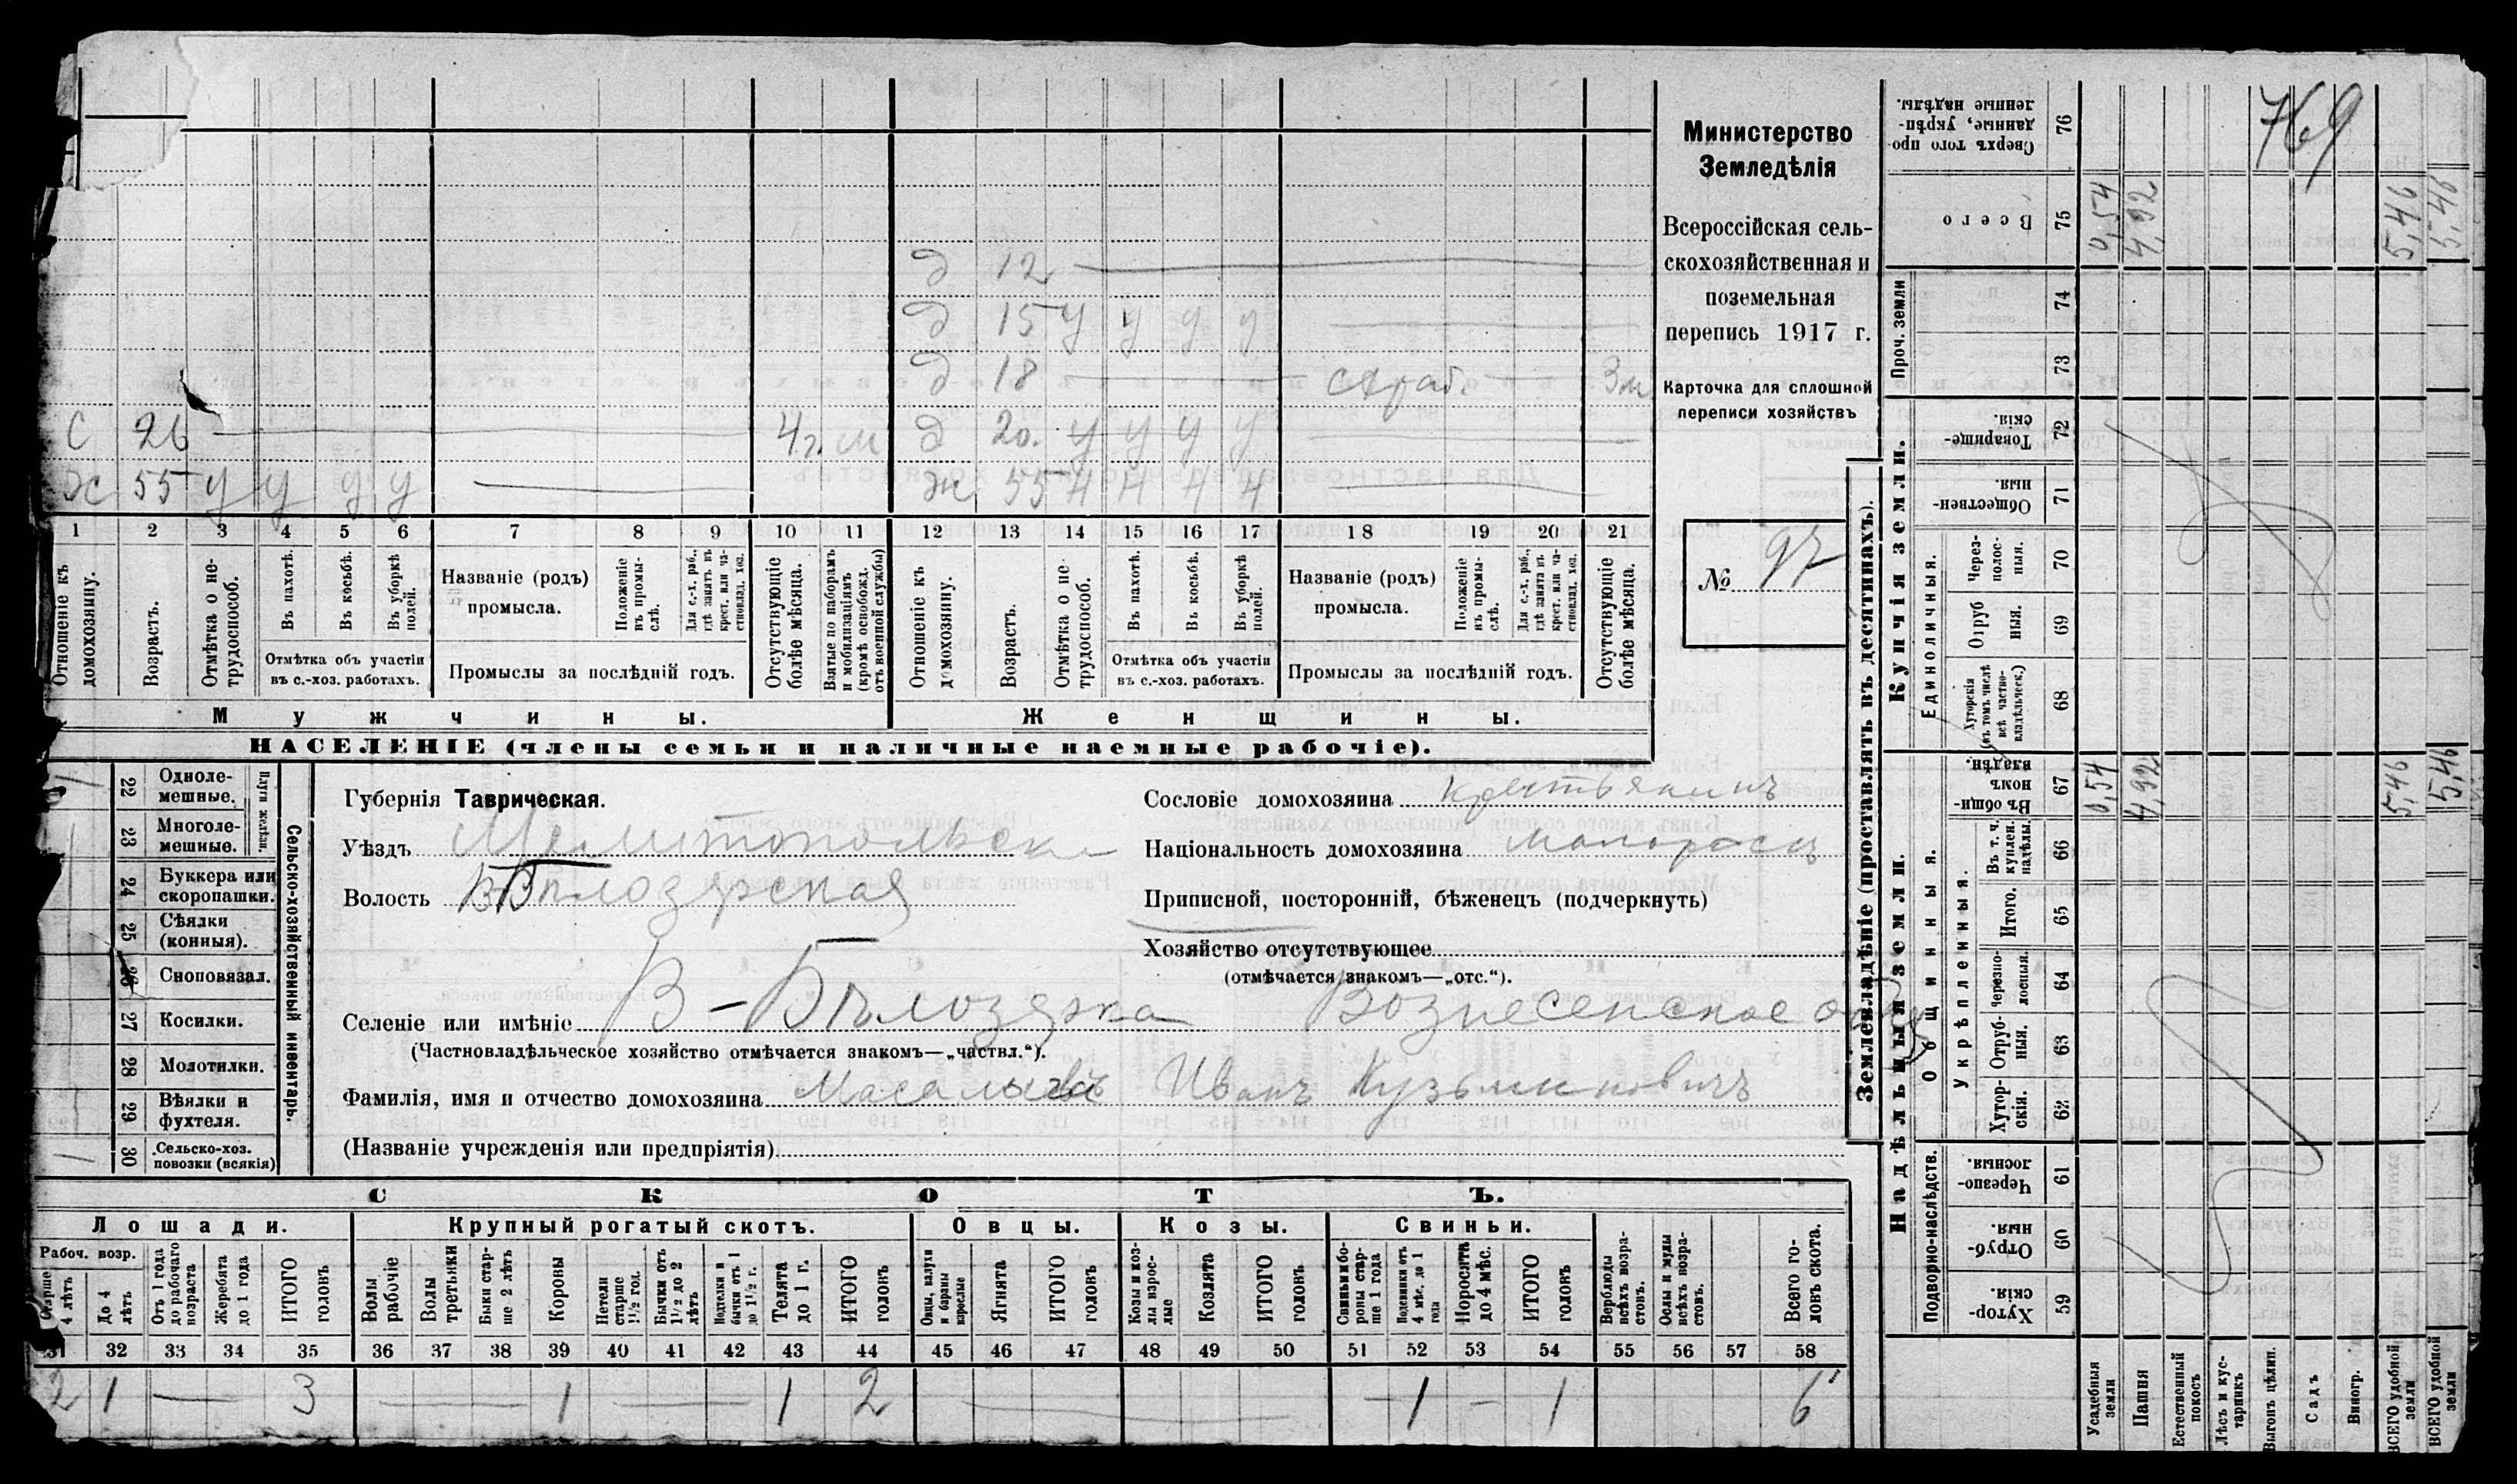 Министерство
Земледѣлія
Всероссійская сель-
скохозяйственная и
поземельная
перепись 1917 г.
Карточка для сплошной
переписи хозяйствъ
№ 97
769
д 12
д 15 у у у у
д 18 3м
с 26 4г. м д 20. у у у у
ж 55 у у у у ж 55 н н н н
1 2 3 4 5 6 7 8 9 10 11 12 13 14 15 16 17 18 19 20 21
Отношеніе къ домохозяину.
Возрастъ.
Отмѣтка о не-трудоспособ.
Въ пахотѣ.
Въ косьбѣ.
Въ уборкѣ полей.
Отмѣтка объ участіи
въ с.-хоз. работахъ.
Названіе (родъ)
промысла.
Положеніе въ промы-слѣ.
Для с.-х. раб., гдѣ занятъ въ крест. или ча-стновлад. хоз.
Промыслы за послѣдній годъ.
Отсутствующіе болѣе мѣсяца.
Взятые по наборамъ и мобилизаціямъ (кромѣ освобожд. отъ военной службы)
Отношеніе къ домохозяину.
Возрастъ.
Отмѣтка о не-трудоспособ.
Въ пахотѣ.
Въ косьбѣ.
Въ уборкѣ полей.
Отмѣтка объ участіи
въ с.-хоз. работахъ.
Названіе (родъ)
промысла.
Положеніе въ промы-слѣ.
Для с.-х. раб., гдѣ занята въ крест. или ча-стновлад. хоз.
Промыслы за послѣдній годъ.
Отсутствующіе болѣе мѣсяца.
Мужчины. Женщины.
НАСЕЛЕНІЕ (члены семьи и наличные наемные рабочіе).
22 Одноле-мешные.
23 Многоле-мешные.
Плуги желѣзн.
24 Буккера или скоропашки.
25 Сѣялки (конныя).
26 Сноповязал.
27 Косилки.
28 Молотилки.
29 Вѣялки и фухтеля.
30 Сельско-хоз. повозки (всякія)
Сельско-хозяйственный инвентарь.
Губернія Таврическая.
Уѣздъ Мелитопольск
Волость В Бѣлозерская
Сословіе домохозяина крестьянинъ
Національность домохозяина малороссъ
Приписной, посторонній, бѣженецъ (подчеркнуть)
Хозяйство отсутствующее
(отмѣчается знакомъ—„отс.“).
Селеніе или имѣніе В-Бѣлозерка Вознесенское
(Частновладѣльческое хозяйство отмѣчается знакомъ—„частвл.“).
Фамилія, имя и отчество домохозяина Иванъ Кузьминовичъ
(Названіе учрежденія или предпріятія)
СКОТЪ.
Лошади. Крупный рогатый скотъ. Овцы. Козы. Свиньи.
Рабоч. возр.
Старше 4 лѣтъ
До 4 лѣтъ
Отъ 1 года до рабочаго возраста
Жеребята до 1 года
ИТОГО головъ
Волы рабочіе
Волы третьяки
Быки стар-ше 2 лѣтъ
Коровы
Нетели старше 1½ год.
Бычки отъ 1½ до 2 лѣтъ
Подтелки и бычки отъ 1 до 1½ г.
Телята до 1 г.
ИТОГО головъ
Овцы, валухи и бараны взрослые
Ягнята
ИТОГО головъ
Козы и коз-лы взрос-лые
Козлята
ИТОГО головъ
Свиньи и бо-ровы стар-ше 1 года
Подсвинки отъ 4 мѣс. до 1 года
Поросята до 4 мѣс.
ИТОГО головъ
Верблюды всѣхъ возра-стовъ.
Ослы и мулы всѣхъ возра-стовъ.
Всего го-ловъ скота.
31 32 33 34 35 36 37 38 39 40 41 42 43 44 45 46 47 48 49 50 51 52 53 54 55 56 57 58
2 1 — 3 — 1 — 1 2 — — 1 — 1 6
Землевладѣніе (проставлять въ десятинахъ).
Купчія земли.
Надѣльныя земли.
Сверхъ того про-данные, укрѣп-ленные надѣлы. 76
Всего 75 0,54 4,92 5,46 5,46
Проч. земли 74
73
Товарище-скія. 72
Обществен-ныя. 71
Единоличныя.
Через-полос-ныя. 70
Отруб ныя. 69
Хуторскія (въ томъ числѣ всѣ частно-владѣльческ.) 68
Общинныя.
Въ общи-номъ владѣн. 67 0,54 4,92 5,46 5,46
Укрѣпленныя.
Въ т. ч. куплен. надѣлы. 66
Итого. 65
Черезпо-лосныя. 64
Отруб-ныя. 63
Хутор-скія. 62
Подворно-наслѣдств.
Черезпо-лосныя. 61
Отруб-ныя. 60
Хутор-скія. 59
Усадебныя земли
Пашня
Естественный покосъ
Лѣсъ и кус-тарникъ
Выгонъ цѣлин.
Садъ
Виногр.
ВСЕГО удобной земли
ВСЕГО удобной земли